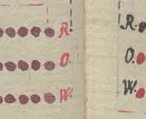 R.
O.
W.
R.
O.
W.